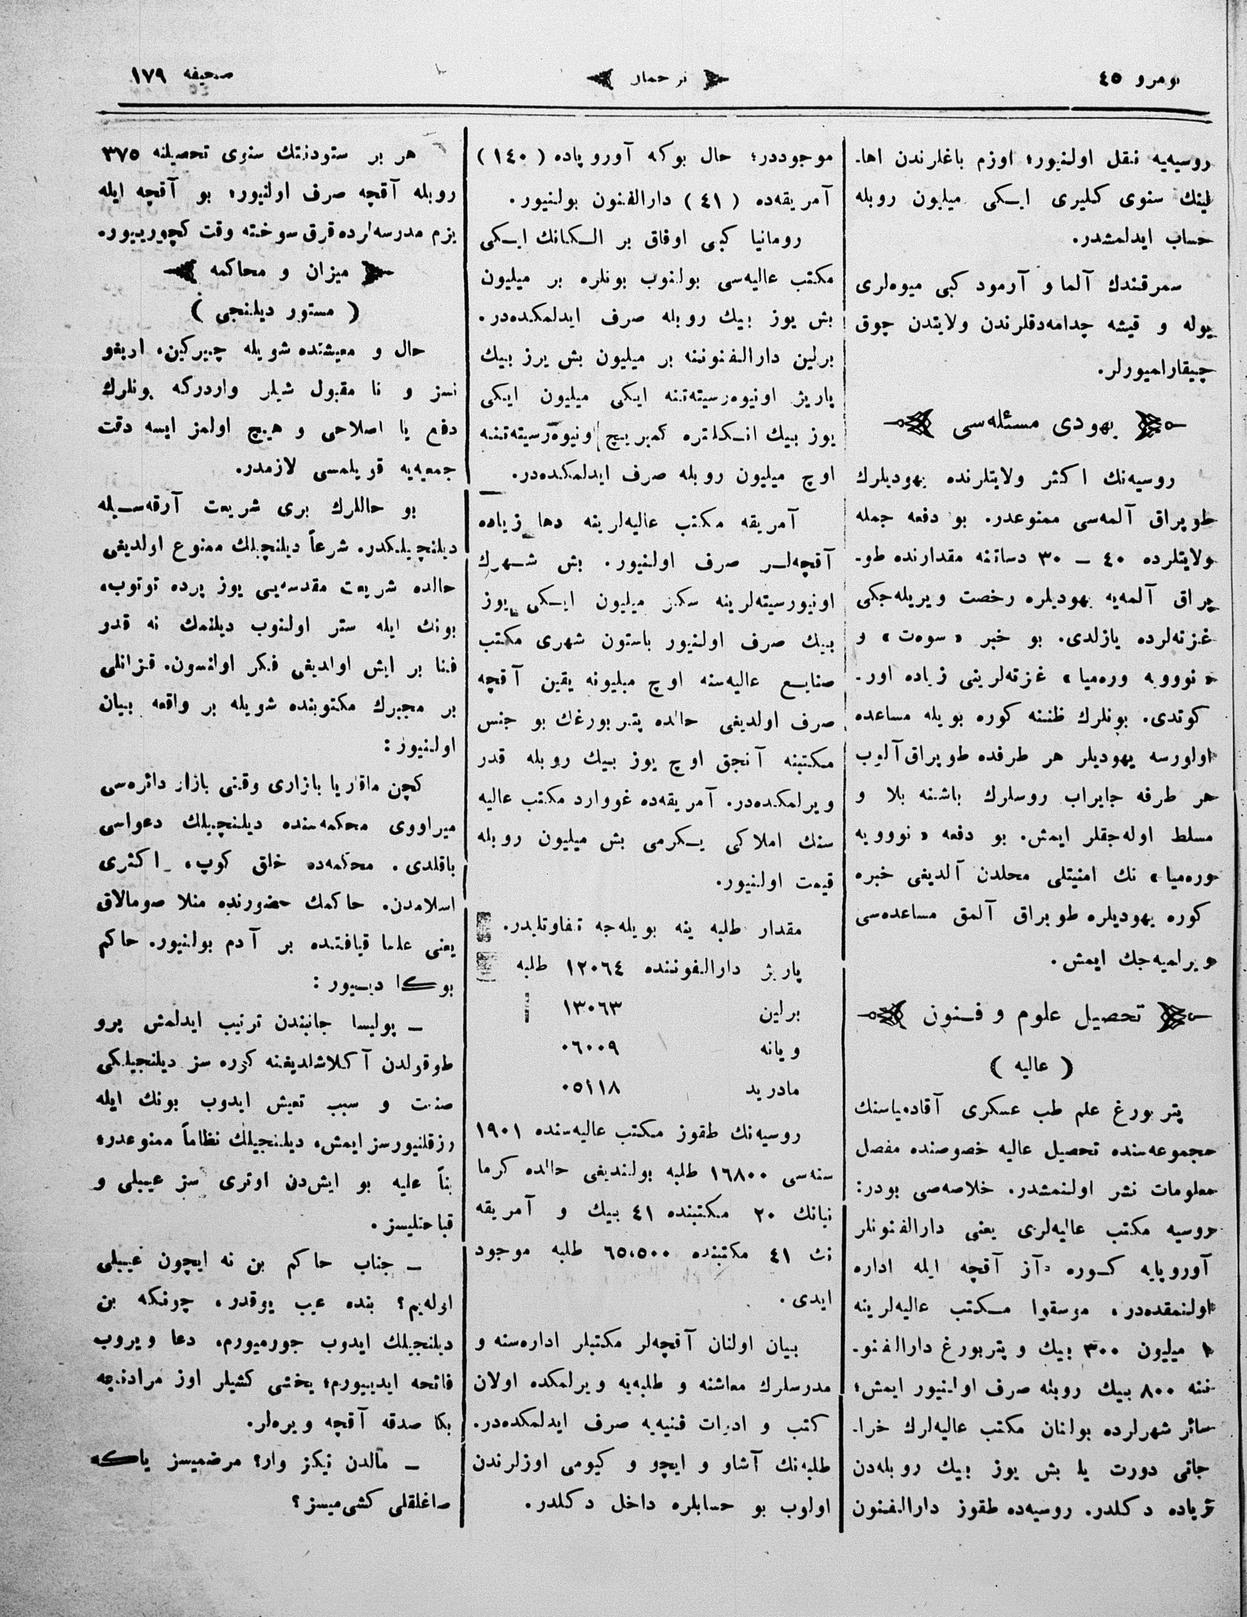 نومرو ٤٥
ترجمان
صحیفه ١٧٩
روسیه‌یه نقل اولنیور؛ اوزم باغلرندن اها-
لینك سنوی كلیری ایكی میلیون روبله
حساب ایدلمشدر.
سمرقندك آلما و آرمود كبی میوه‌لری
یوله و قیشه چدامه‌دقلرندن ولایتدن چوق
چیقارلمیورلر.
یهودی مسئله‌سی
روسیه‌نك اكثر ولایتلرنده یهودیلرك
طوپراق آلمه‌سی ممنوعدر. بو دفعه جمله
ولایتلرده ٤٠ — ٣٠ دساتنه مقدارنده طو-
پراق آلمه‌یه یهودیلره رخصت ویریله‌جكی
غزته‌لرده یازلدی. بو خبر «سوه‌ت» و
«نوویه وره‌میا» غزته‌لرینی زیاده اور-
كوتدی. بونلرك ظننه كوره بویله مساعده
اولورسه یهودیلر هر طرفده طوپراق آلوب
هر طرفه جایراب روسلرك باشنه بلا و
مسلط اوله‌جقلر ایمش. بو دفعه «نوویه
وره‌میا» نك امنیتلی محلدن آلدیغی خبره
كوره یهودیلره طوپراق آلمق مساعده‌سی
ویرلمیه‌جك ایمش.
تحصیل علوم و فنون
( عالیه )
پتربورغ علم طب عسكری آقاده‌میاسنك
مجموعه‌سنده تحصیل عالیه خصوصنده مفصل
معلومات نشر اولنمشدر. خلاصه‌صی بودر:
روسیه مكتب عالیه‌لری یعنی دارالفنونلر
آوروپایه كوره آز آقچه ایله اداره
اولنمقده‌در. موسقوا مكتب عالیه‌لرینه
١ میلیون ٣٠٠ بیك و پتربورغ دارالفنو-
ننه ٨٠٠ بیك روبله صرف اولنیور ایمش؛
سائر شهرلرده بولنان مكتب عالیه‌لرك خرا-
جاتی دورت یا بش یوز بیك روبله‌دن
زیاده دكلدر. روسیه‌ده طقوز دارالفنون
موجوددر؛ حال بوكه آوروپاده (١٤٠)
آمریقه‌ده (٤١) دارالفنون بولنیور.
رومانیا كبی اوفاق بر الكانك ایكی
مكتب عالیه‌سی بولنوب بونلره بر میلیون
بش یوز بیك روبله صرف ایدلمكده‌در.
برلین دارالفنوننه بر میلیون بش یرز بیك
پاریژ اونیوه‌رسیته‌تنه ایكی میلیون ایكی
یوز بیك انكلتره كمبریچ اونیوه‌رسیته‌تنه
اوچ میلیون روبله صرف ایدلمكده‌در.
آمریقه مكتب عالیه‌لرینه دها زیاده
آقچه‌لر صرف اولنیور. بش شهرك
اونیورسیته‌لرینه سكز میلیون ایكی یوز
بیك صرف اولنیور باستون شهری مكتب
صنایع عالیه‌سنه اوچ میلیونه یقین آقچه
صرف اولدیغی حالده پتربورغك بو جنس
مكتبنه آنجق اوچ یوز بیك روبله قدر
ویرلمكده‌در. آمریقه‌ده غووارد مكتب عالیه
سنك املاكی یكرمی بش میلیون روبله
قیمت اولنیور.
مقدار طلبه ینه بویله‌جه تفاوتلیدر.
پاریژ دارالفنوننده ١٢٠٦٤ طلبه
برلین ١٣٠٦٣
ویانه ٠٦٠٠٩
مادرید ٠٥١١٨
روسیه‌نك طقوز مكتب عالیه‌سنده ١٩٠١
سنه‌سی ١٦٨٠٠ طلبه بولندیغی حالده كرما
نیانك ٢٠ مكتبنده ٤١ بیك و آمریقه
نك ٤١ مكتبنده ٦٥،٥٠٠ طلبه موجود
ایدی.
بیان اولنان آقچه‌لر مكتبلر اداره‌سنه و
مدرسلرك معاشنه و طلبه‌یه ویرلمكده اولان
كتب و ادوات فنیه‌یه صرف ایدلمكده‌در.
طلبه‌نك آشاو و ایچو و كیومی اوزلرندن
اولوب بو حسابلره داخل دكلدر.
هر بر ستودنتك سنوی تحصیلنه ٣٧٥
روبله آقچه صرف اولنیور؛ بو آقچه ایله
بزم مدرسه‌لرده قرق سوخته وقت كچوریبور.
میزان و محاكمه
( مستور دیلنجی )
حال و معیشتده شویله چیركین، اریغو
نسز و نا مقبول شیلر واردركه بونلرك
دفع یا اصلاحی و هیچ اولمز ایسه دقت
جمعیه‌یه قویلمسی لازمدر.
بو حاللرك بری شریعت آرقه‌سیله
دیلنچیلكدر. شرعاً دیلنچیلك ممنوع اولدیغی
حالده شریعت مقدسه‌یی یوز پرده توتوب،
بونك ایله ستر اولنوب دیلنمك نه قدر
فنا بر ایش اولدیغی فكر اولنسون. قزانلی
بر مجبرك مكتوبنده شویله بر واقعه بیان
اولنیور:
كچن ماقاریا بازاری وقتی بازار دائره‌سی
میراووی محكمه‌سنده دیلنچیلك دعواسی
باقلدی. محكمه‌ده خلق كوپ، اكثری
اسلامدن. حاكمك حضورنده منلا صومالاق
یعنی علما قیافتنده بر آدم بولنیور. حاكم
بوكا دیـیور:
— پولیسا جانبندن ترتیب ایدلمش پرو
طوقولدن آكلاشلدیغنه كوره سز دیلنجیلكی
صنعت و سبب تعیش ایدوب بونك ایله
رزقلنیورسز ایمش، دیلنجیلك نظاماً ممنوعدر،
بنأ علیه بو ایش‌دن اوتری سز عیبلی و
قباحتلیسز.
— جناب حاكم بن نه ایچون عیبلی
اوله‌یم؟ بنده عیب یوقدر، چونكه بن
دیلنجیلك ایدوب جورمیورم، دعا ویروب
فاتحه ایدیبیورم؛ یخشی كشیلر اوز مرادنجه
بكا صدقه آقچه ویره‌لر.
— مالدن نیكز وار؟ مرضمیسز یاكه
صاغلقلی كشی‌میسز؟